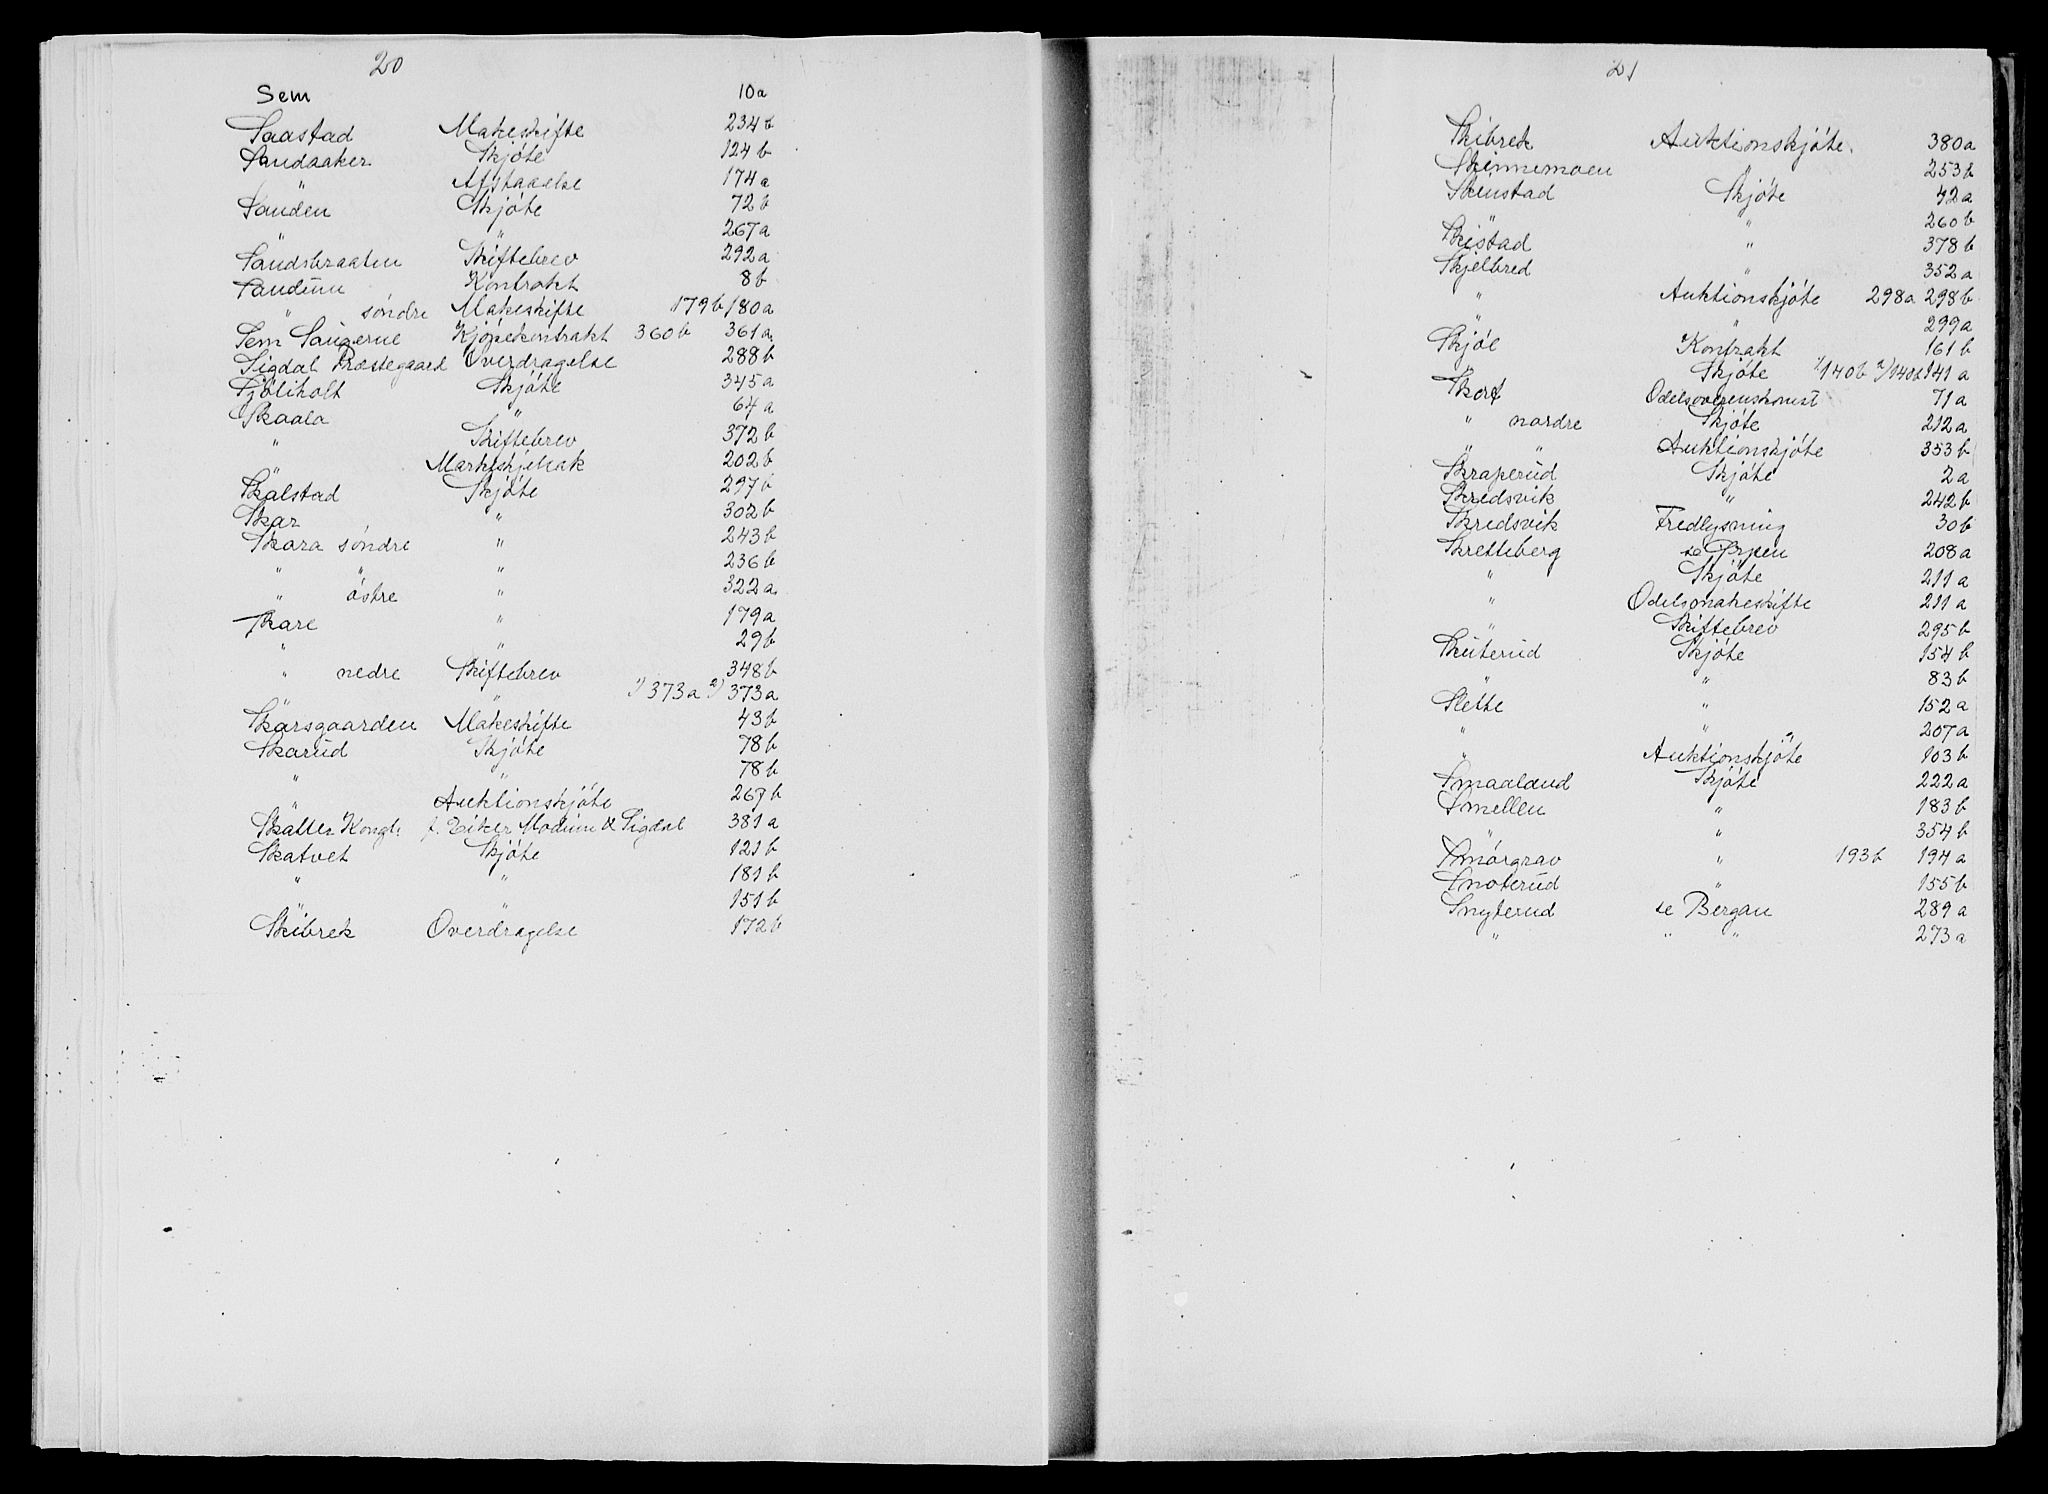 20
Sem 10a
Saastad Makeskifte 234b
Sandaaker Skjöte 124b
" Afstaaelse 174a
Sanden Skjöte 72b
" " 267a
Sandsbraaten Skiftebrev 292a
Sandum Kontrakt 8b
" söndre Makeskifte 179b 180a
Sem Saugerne Kjöpekontrakt 360b 361a
Sigdal Præstegaard Overdragelse 288b
Sjöliholt Skjöte 345a
Skaala " 64a
" Skiftebrev 372b
" 202b
Skalstad Skjöte 297b
Skar " 302b
Skara söndre " 243b
" " " 236b
" östre " 322a
Skare " 179a
" " 29b
" nedre Skiftebrev 348b
" " 1) 373a 2) 373a
Skarsgaarden Makeskifte 43b
Skarud Skjöte 78b
" " 78b
" Auktionskjöte 267b
Skatter Kongl. f. Eiker Modum & Sigdal 381a
Skatvet Skjöte 121b
" " 181b
" " 151b
Skibrek Overdragelse 172b
21
Skibrek Auktionskjöte. 380a
Skinnemoen " 253b
Skinstad Skjöte 42a
" " 260b
Skistad " 378b
Skjelbred " 352a
" Auktionskjöte 298a 298b
" 299a
Skjöl Kontrakt 161b
" Skjöte 1) 140b 2) 140b 141a
Skort Odelsoverenskomst 71a
" nordre Skjöte 212a
" " Auktionskjöte 353b
Skraperud Skjöte 2a
Skredsvik " 242b
Skredsvik Fredlysning 30b
Skretteberg se Byen 208a
" Skjöte 211a
" Odelsmakeskifte 211a
" Skiftebrev 295b
Skuterud Skjöte 154b
" " 83b
Slette " 152a
" " 207a
" Auktionskjöte 103b
Smaaland Skjöte 222a
Smellen " 183b
" " 354b
Smörgrav " 193b 194a
Snoterud " 155b
Snyterud se Bergan 289a
" " " 273a